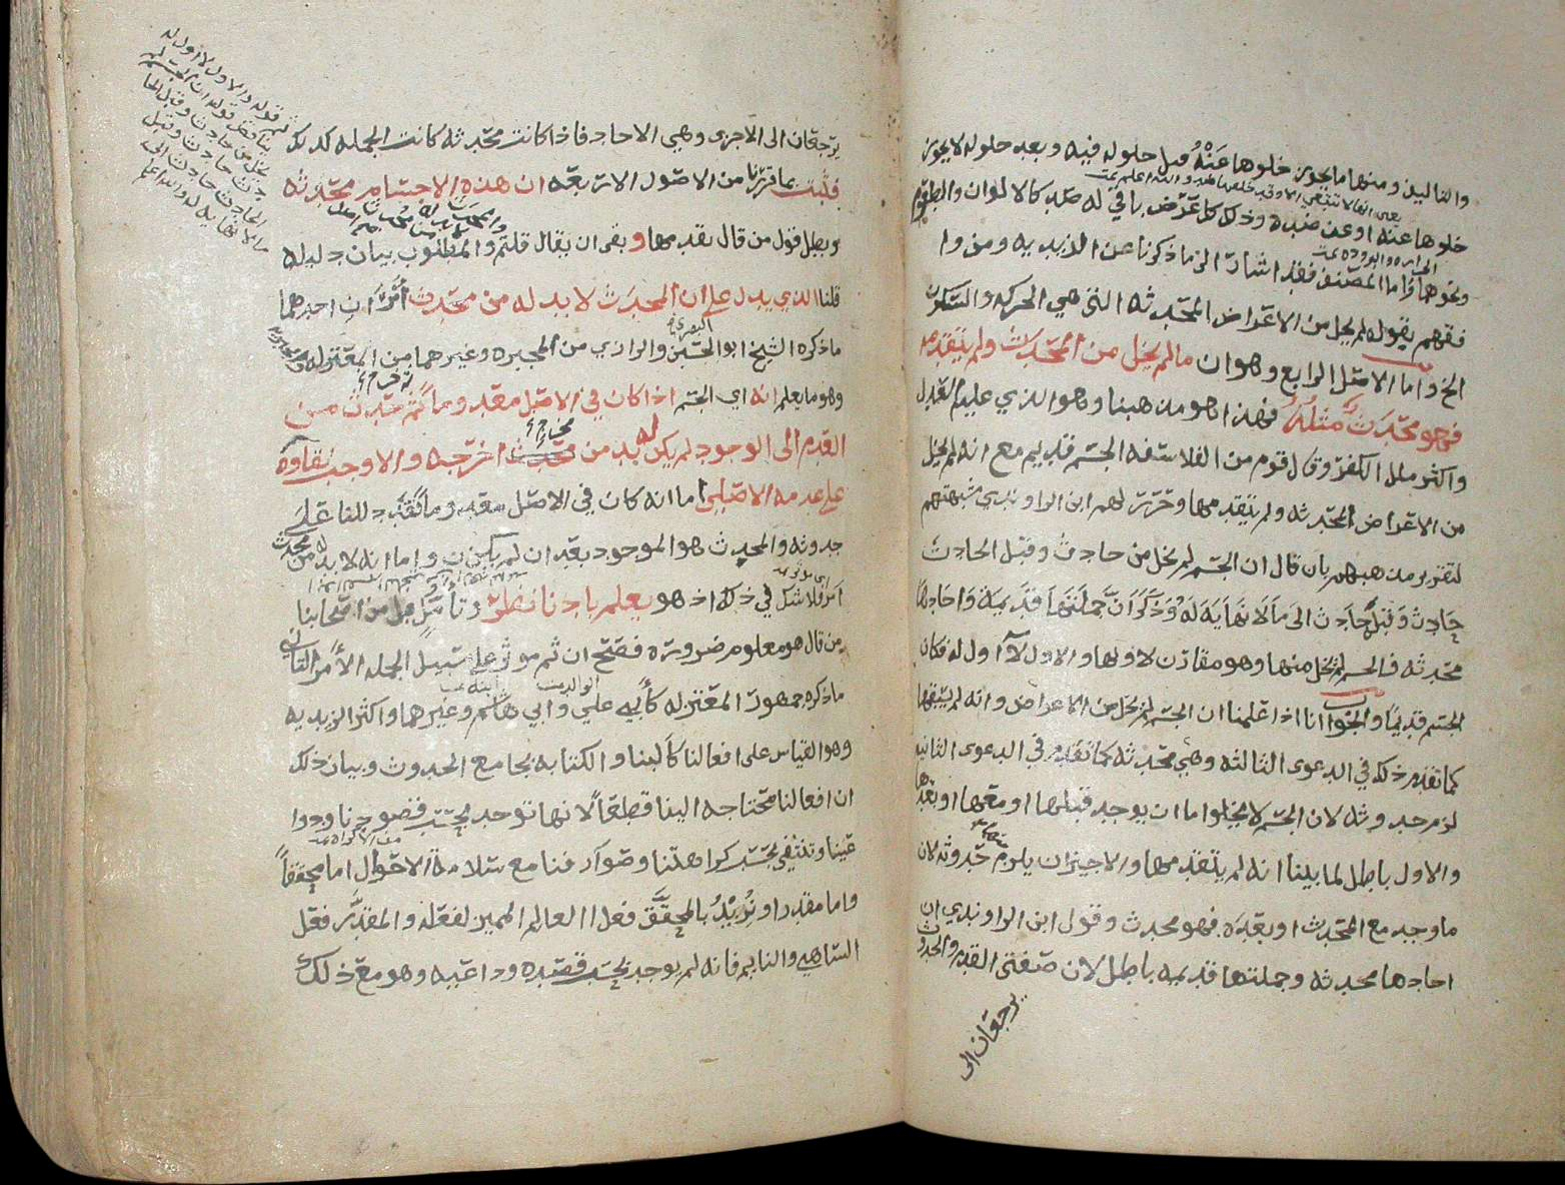 والتاليف ومنها ما يجوز خلوها عنه قبل حلوله فيه وبعد حلوله لا يجوز
خلوها عنه او عن ضده وذلك كل عرض باقي له ضد كالالوان والطعوم
ونحوهما واما المصنف فقد اشار الى ما ذكرنا عن الزيديه ومن وا
فقهم بقوله لم يخل من الاعراض المحدثه التي هي الحركه والسكون
الخ واما الاصل الرابع وهو ان ما لم يخل من المحدث ولم يتقدمه
فهو محدث مثله فهذا هو مذهبنا وهو الذي عليه اهل العدل
واكثر ملل الكفر وقال قوم من الفلاسفه الجسم قديم مع انه لم يخل
من الاعراض المحدثه ولم يتقدمها وحرر لهم ابن الراوندي شبهتهم
لتقرير مذهبهم بان قال ان الجسم لم يخل من حادث وقبل الحادث
حادث وقبل حادث الى ما لا نهاية له وذكر ان جملتها قديمة واحادها
محدثه فالجسم لم يخل منها وهو مقارن لاولها والاول لا اول له فكان
الجسم قديما والجواب انا اذا علمنا ان الجسم لم يخل من الاعراض وانه لم يسبقها
كما تقدم ذلك في الدعوى الثالثه وهي محدثه كما تقدم في الدعوى الثانيه
لزم حدوثه لان الجسم لا يخلوا اما ان يوجد قبلها او معها او بعدها
والاول باطل لما بينا انه لم يتقدمها والاخيران يلزم حدوثه لان
ما وجد مع المحدث او بعده فهو محدث وقول ابن الراوندي ان
احادها محدثه وجملتها قديمه باطل لان صفتي القدم والحدوث
يرجعان الى
يرجعان الى الاجزى وهي الاحاد فاذا كانت محدثه كانت الجمله كذلك
فثبت بما قررنا من الاصول الاربعه ان هذه الاجسام محدثه
وبطل قول من قال بقدمها و بقى ان يقال قلتم والمطلوب بيان دليله
قلنا الذي يدل على ان المحدث لا بد له من محدث أمران احدهما
البصري
ما ذكره الشيخ ابو الحسين والرازي من المجبره وغيرهما من المعتزله
وهو ما يعلم انه اي الجسم اذا كان في الاصل معدوما ثم خرج من
العدم الى الوجود لم يكن له بد من مخرج اخرجه والا وجب بقاؤه
على عدمه الاصلي اما انه كان في الاصل معدوما فقد دللنا على
حدوثه والمحدث هو الموجود بعد ان لم يكن واما انه لا بد له من محدث
امر فلا شك في ذلك اذ هو يعلم بادنا نظر وتأمل بل من اصحابنا
من قال هو معلوم ضرورة فصح ان ثم موثر على سبيل الجمله الأمر الثاني
ما ذكره جمهور المعتزله كأبي علي وابي هاشم وغيرهما واكثر الزيديه
وهو القياس على افعالنا كالبنا والكتابه بجامع الحدوث وبيان ذلك
ان افعالنا محتاجه الينا قطعا لانها توجد بحسب قصودنا ودوا
عينا وتنتفي بحسب كراهتنا وصوارفنا مع سلامة الاحوال اما محققا
واما مقدرا ونريد بالمحقق فعل العالم المميز لفعله والمقدر فعل
الساهي والنايم فانه لم يوجد بحسب قصده وداعيه وهو مع ذلك